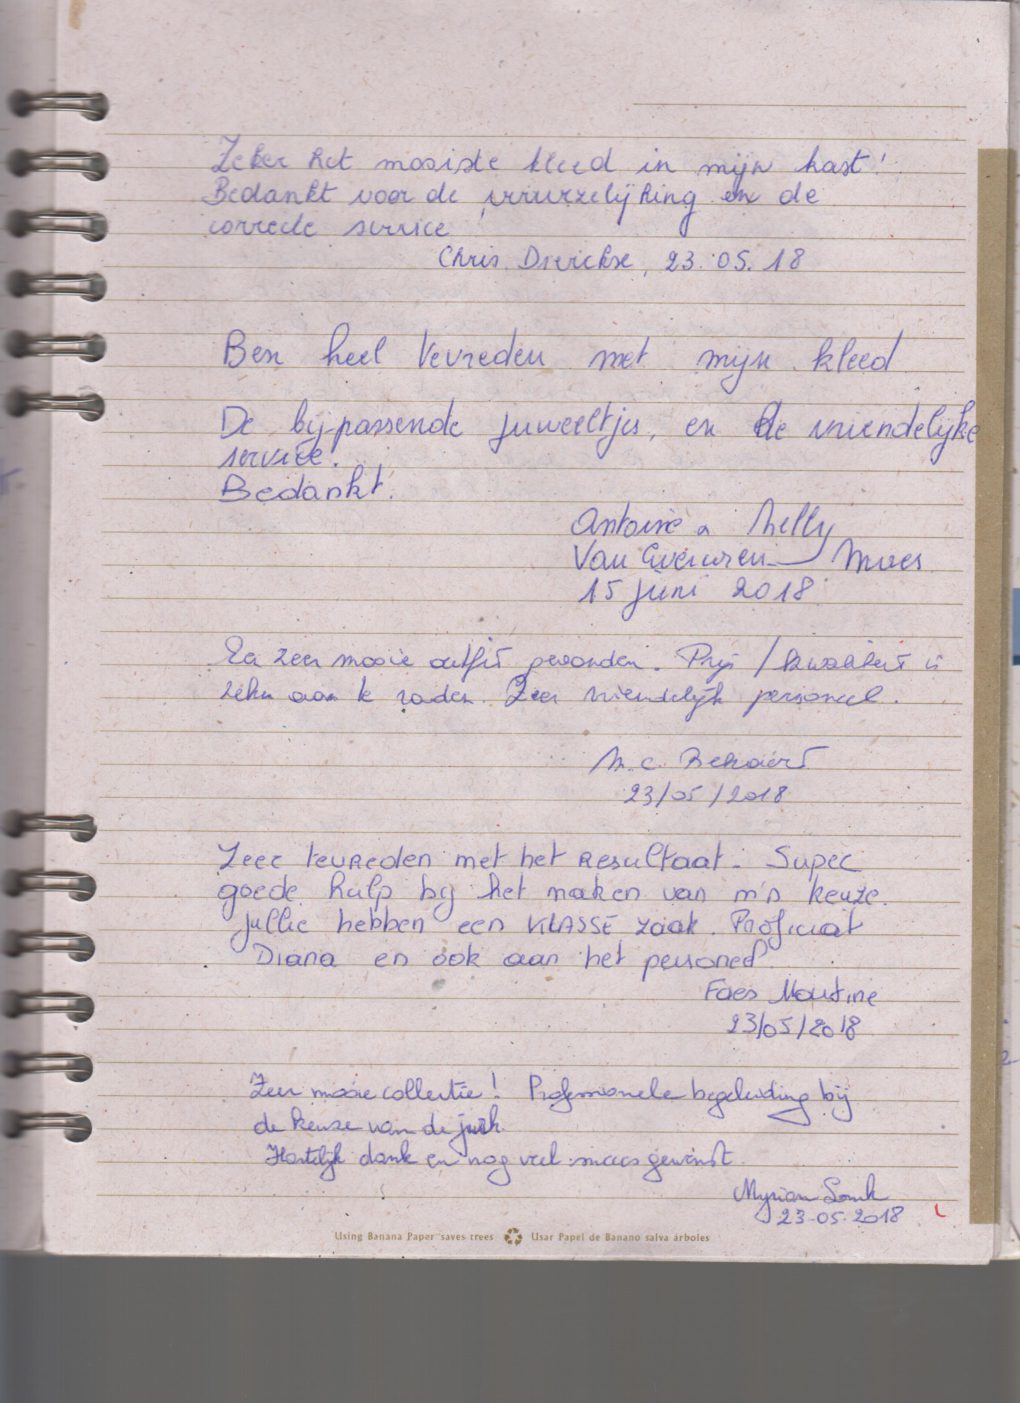 Zeker het mooiste kleed in mijn kast!
Bedankt voor de verwezelijking en de
correcte service
Chris 23.05.18
Ben heel tevreden met mijn kleed
De bijpassende juweeltjes, en de vriendelijke
service.
Bedankt.
Antoine Nelly
Van
15 juni 2018
Een zeer mooie outfit gevonden. Prijs / kwaliteit is
zeker aan te raden. Zeer vriendelijk personeel.
M.C. Bekaert
23/05/2018
Zeer tevreden met het resultaat. Super
goede hulp bij het maken van m'n keuze.
Jullie hebben een KLASSE zaak. Proficiat
Diana en ook aan het personeel
Faes Martine
23/05/2018
Zeer mooie collectie! Professionele begeleiding bij
de keuze van de jurk.
Hartelijk dank en nog veel succes gewenst.
Myriam
23-05-2018
Using Banana Paper saves trees Usar Papel de Banano salva árboles